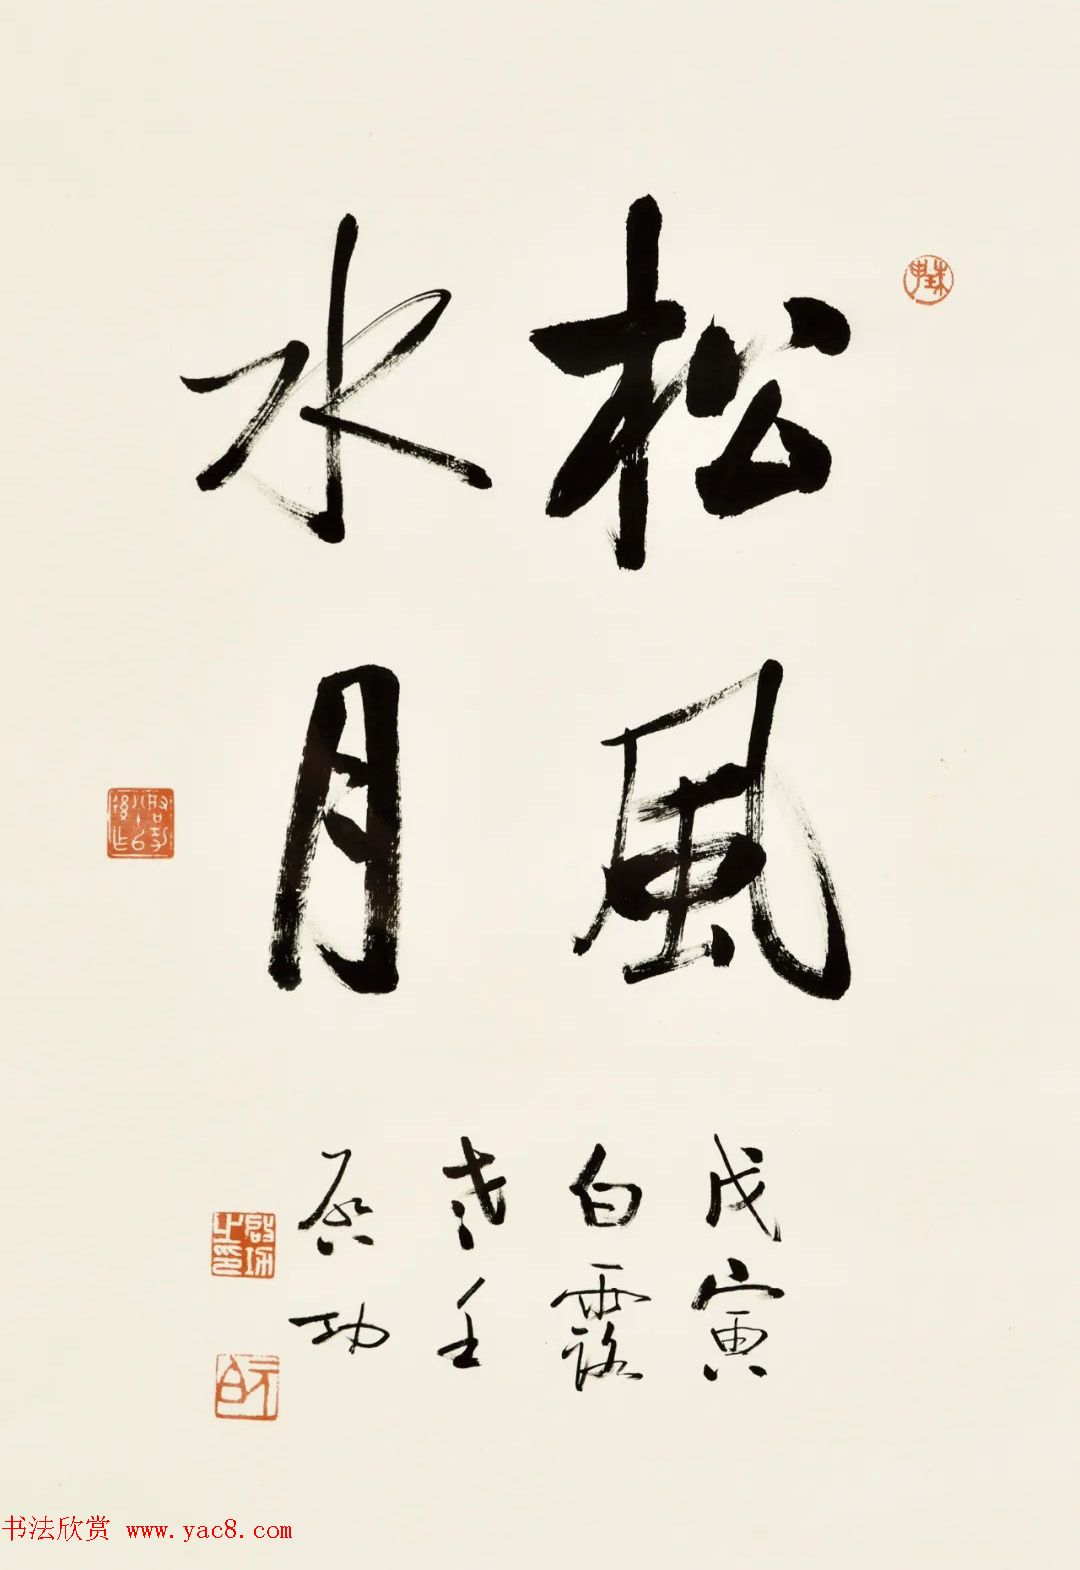 松風
水月
戊寅
白露
启功
啟功之印
元白
书法欣赏 www.yac8.com